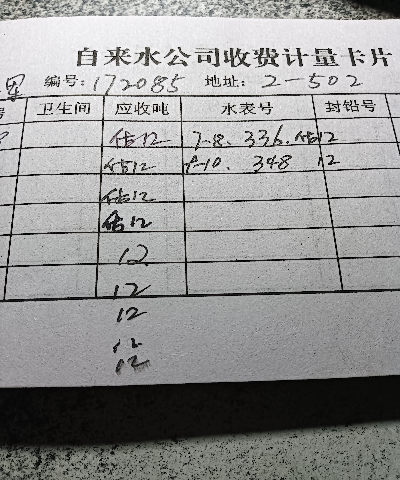 自来水公司收费计量卡片
编号:172085 地址:2-502
卫生间 应收吨 水表号 封铅号
估12 7-8. 336. 估12
估12 9-10. 348 12
估12
估12
12
12
12
12
12